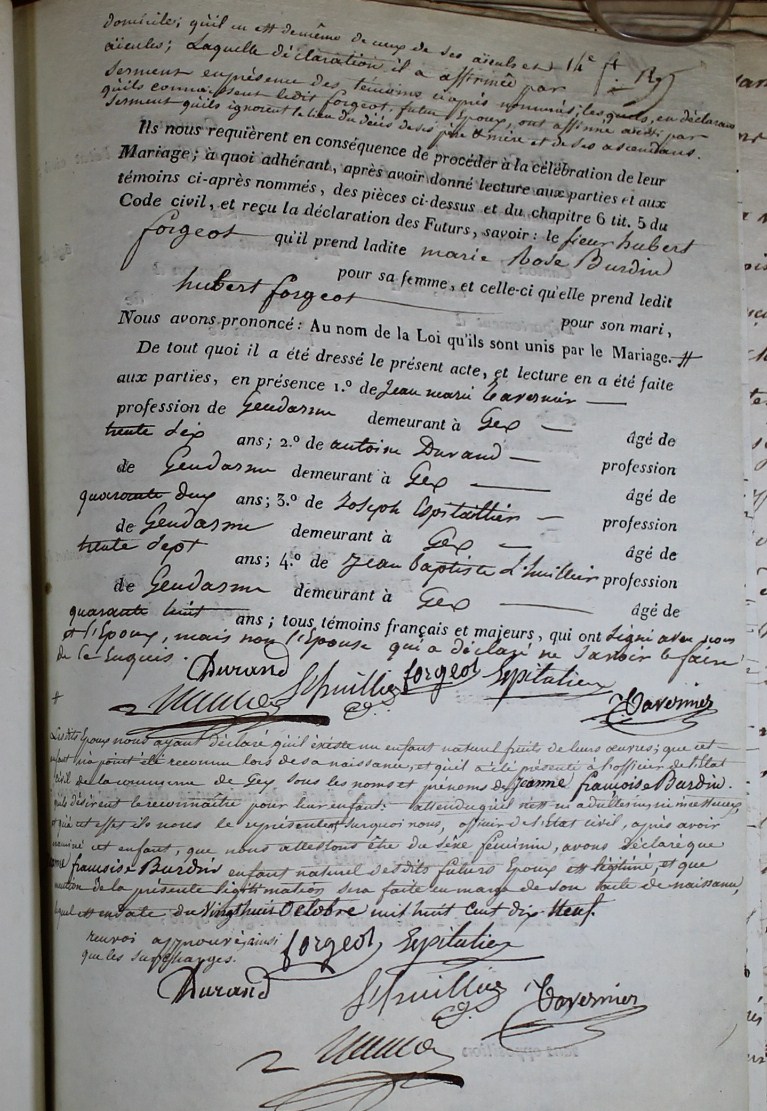 domicile; qu'il en est de même de ceux de ses aïeuls et
aïeules; Laquelle déclaration il a affirmée par
serment en présence des témoins ci après nommés, lesquels, en déclarant
qu'ils connaissent ledit forgeot, futur Epoux, ont affirmé aussi par
serment qu'ils ignorent le lieu du décès de ses père et mère et de ses ascendans.
14e ft.
Ils nous requièrent en conséquence de procéder à la célébration de leur
Mariage; à quoi adhérant, après avoir donné lecture aux parties et aux
témoins ci-après nommés, des pièces ci-dessus et du chapitre 6 tit. 5 du
Code civil, et reçu la déclaration des Futurs, savoir: le sieur hubert
forgeot qu'il prend ladite marie Rose Burdin
pour sa femme, et celle-ci qu'elle prend ledit
hubert forgeot pour son mari,
Nous avons prononcé: Au nom de la Loi qu'ils sont unis par le Mariage. #
De tout quoi il a été dressé le présent acte, et lecture en a été faite
aux parties, en présence 1.º de Jean marie Tavernier —
profession de Gendarme demeurant à Gex — âgé de
trente dix ans; 2.º de antoine Durand — profession
de Gendarme demeurant à Gex — âgé de
quarante deux ans; 3.º de Joseph Espitallier — profession
de Gendarme demeurant à Gex — âgé de
trente sept ans; 4.º de Jean baptiste L'huillier profession
de Gendarme demeurant à Gex — âgé de
quarante huit ans; tous témoins français et majeurs, qui ont signé avec nous
et l'Epoux, mais non l'Epouse qui a déclaré ne savoir le faire
de ce Enquis.
Durand L'huillier forgeot Espitalier
Tavernier
# Lesdits Epoux nous ayant déclaré qu'il existe un enfant naturel fruits de leurs œuvres; que cet
enfant n'a point été reconnu lors de sa naissance, et qu'il a été présenté à l'officier de l'Etat
Civil de la commune de Gex sous les noms et prénoms de Jeanne françoise Burdin.
qu'ils désirent le reconnaître pour leur enfant: attendu qu'il n'est ni adultérin, ni incestueux,
qu'à cet effet ils nous le représentent, surquoi nous, officier de l'Etat civil, après avoir
examiné cet enfant, que nous attestons être du sexe féminin, avons déclaré que
Jeanne françoise Burdin enfant naturel desdits futurs Epoux est légitimé, et que
mention de la présente légitimation sera faite en marge de son acte de naissance,
lequel est en date du Vingt huit Octobre mil huit cent dix-Neuf.
renvoi approuvé, ainsi
que les surcharges.
forgeot Espitalier
Durand L'huillier Tavernier